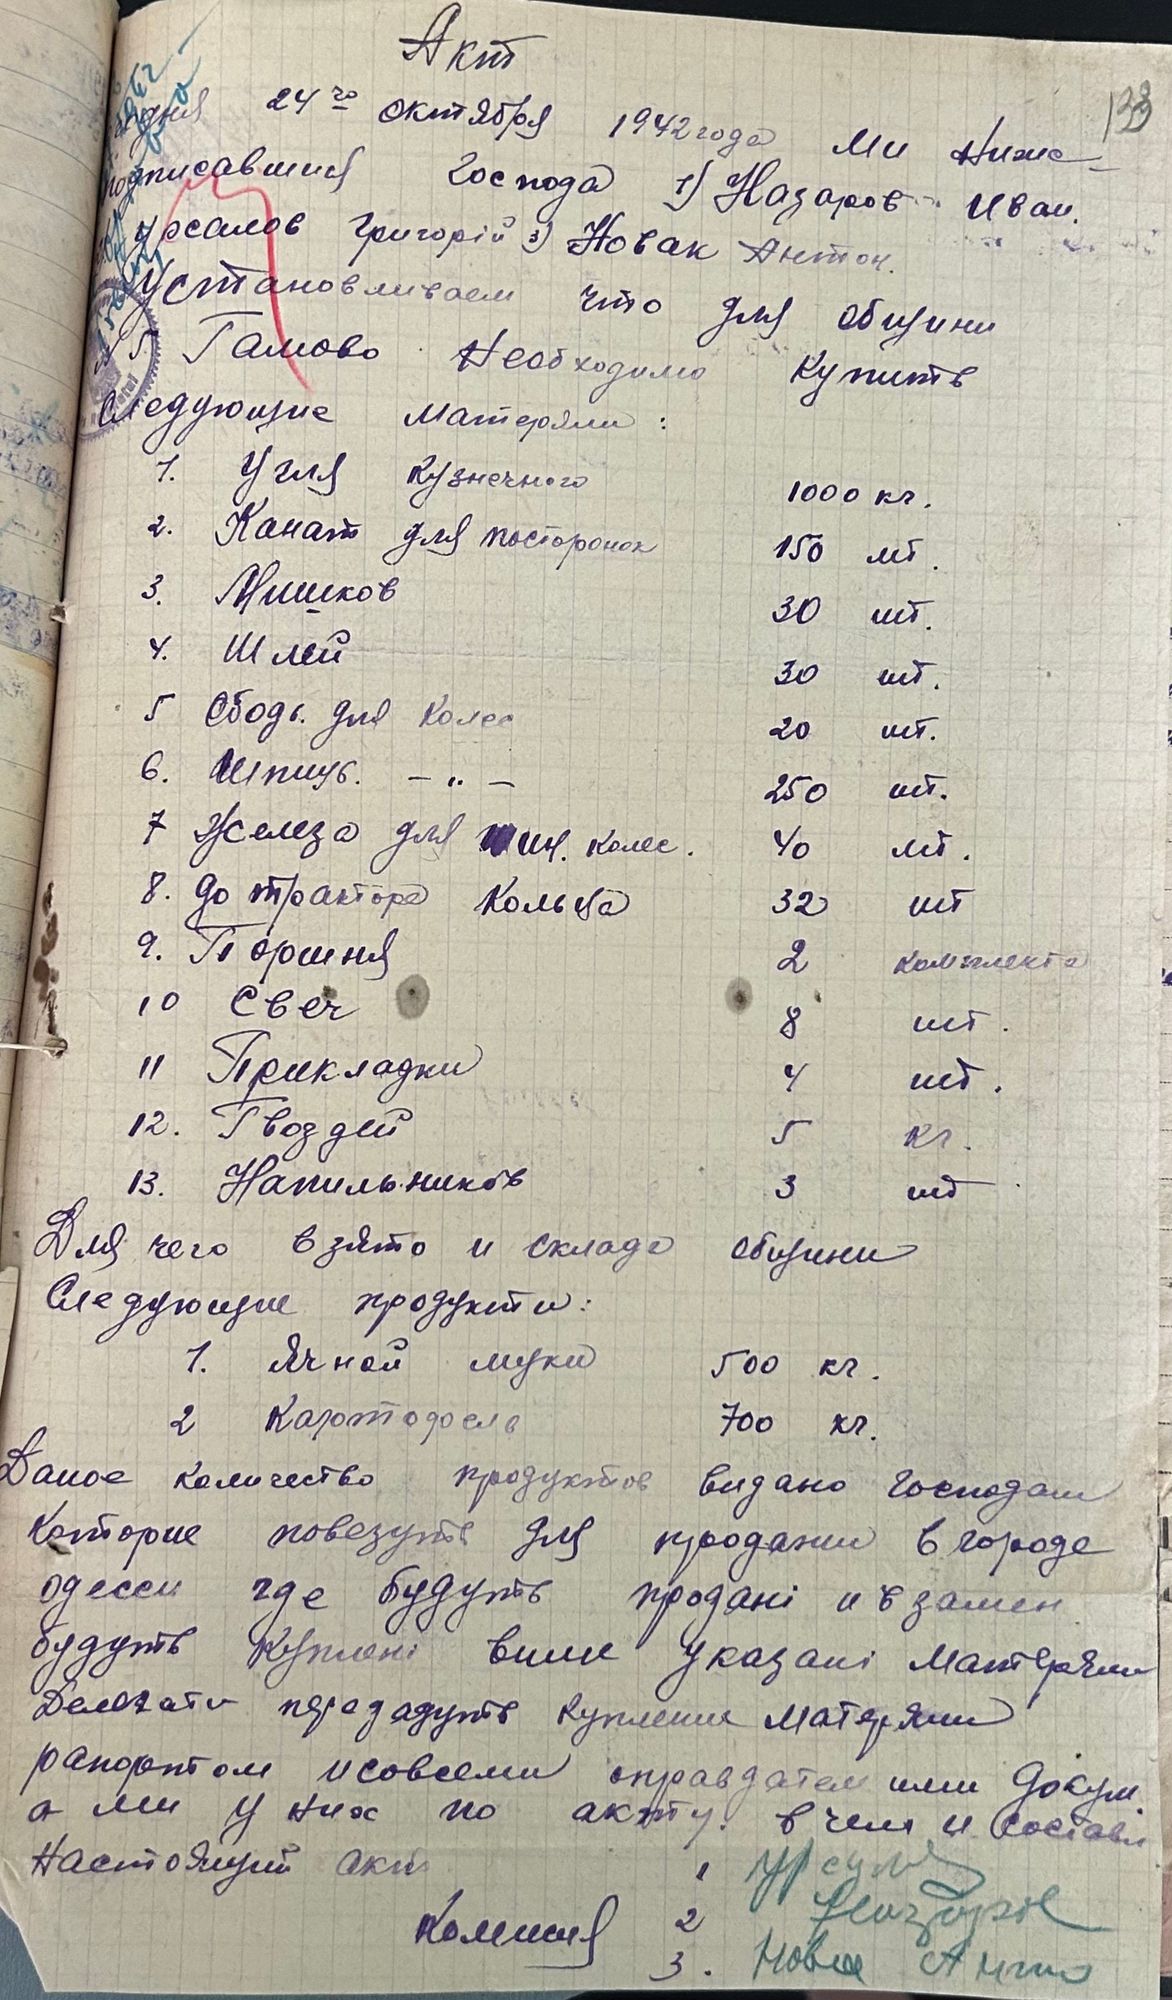 Акт
133
дня 24го октября 1942 года ми ниже-
подписавшися господа 1) Назаров Иван.
Урсалов Григорій 3) Новак Антон.
Установливаем что для общини
Гамово необходимо купить
следующие матеряли:
1. Угля кузнечного 1000 кг.
2. Канат для посторонок 150 мт.
3. Мишков 30 шт.
4. Шлей 30 шт.
5 Ободь. для колес 20 шт.
6. Шпиць. — „ — 250 шт.
7 Железа для шин. колес. 40 мт.
8. до трактора кольца 32 шт
9. Поршня 2 комплекта
10 Свеч 8 шт.
11 Прикладки 4 шт.
12. Гвоздей 5 кг.
13. Напильников 3 шт
Для чего взято и склада общини
следующие продукти:
1. Ячной муки 500 кг.
2 Картофеля 700 кг.
Даное количество продуктов видано господам
которие повезуть для продажи в городе
одесси где будуть продані и взамен
будуть куплені више указані матеряли
Делегати передадуть купление матеряли
рапортом и совсеми оправдательними докум.
а ми у них по акту. в чем и состави
настоящий акт
1 Урсул
Комисия 2 Назаров
3. Новак Антон